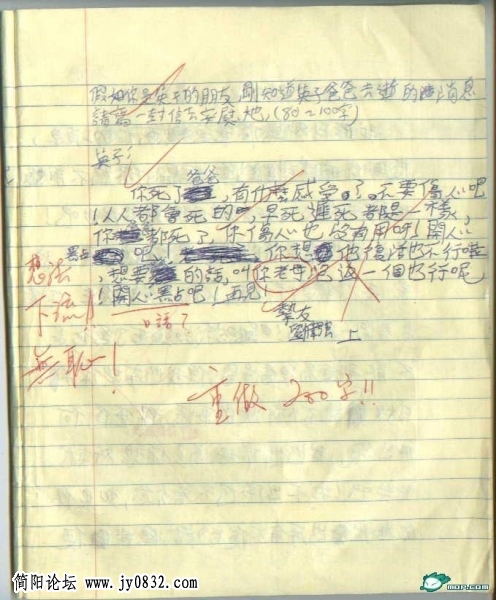 假如你是英子的朋友,剛知道英子爸爸去逝的消息
請寫一封信去安慰她,(80~100字)
英子:
爸爸
你死了,有什麼感受。了。不要傷心吧
!人人都會死的吧,早死遲死都是一樣,
你都死了,你傷心也沒有用呀!開心
點吧!你想他復活也不行啦
,想要的話,叫你老母它返一個也行呢
!開心點吧!再見!
摯友
上
想法
下流!!
無恥!
口語?
重做 200字!!
简阳论坛 www.jy0832.com
MOP.COM